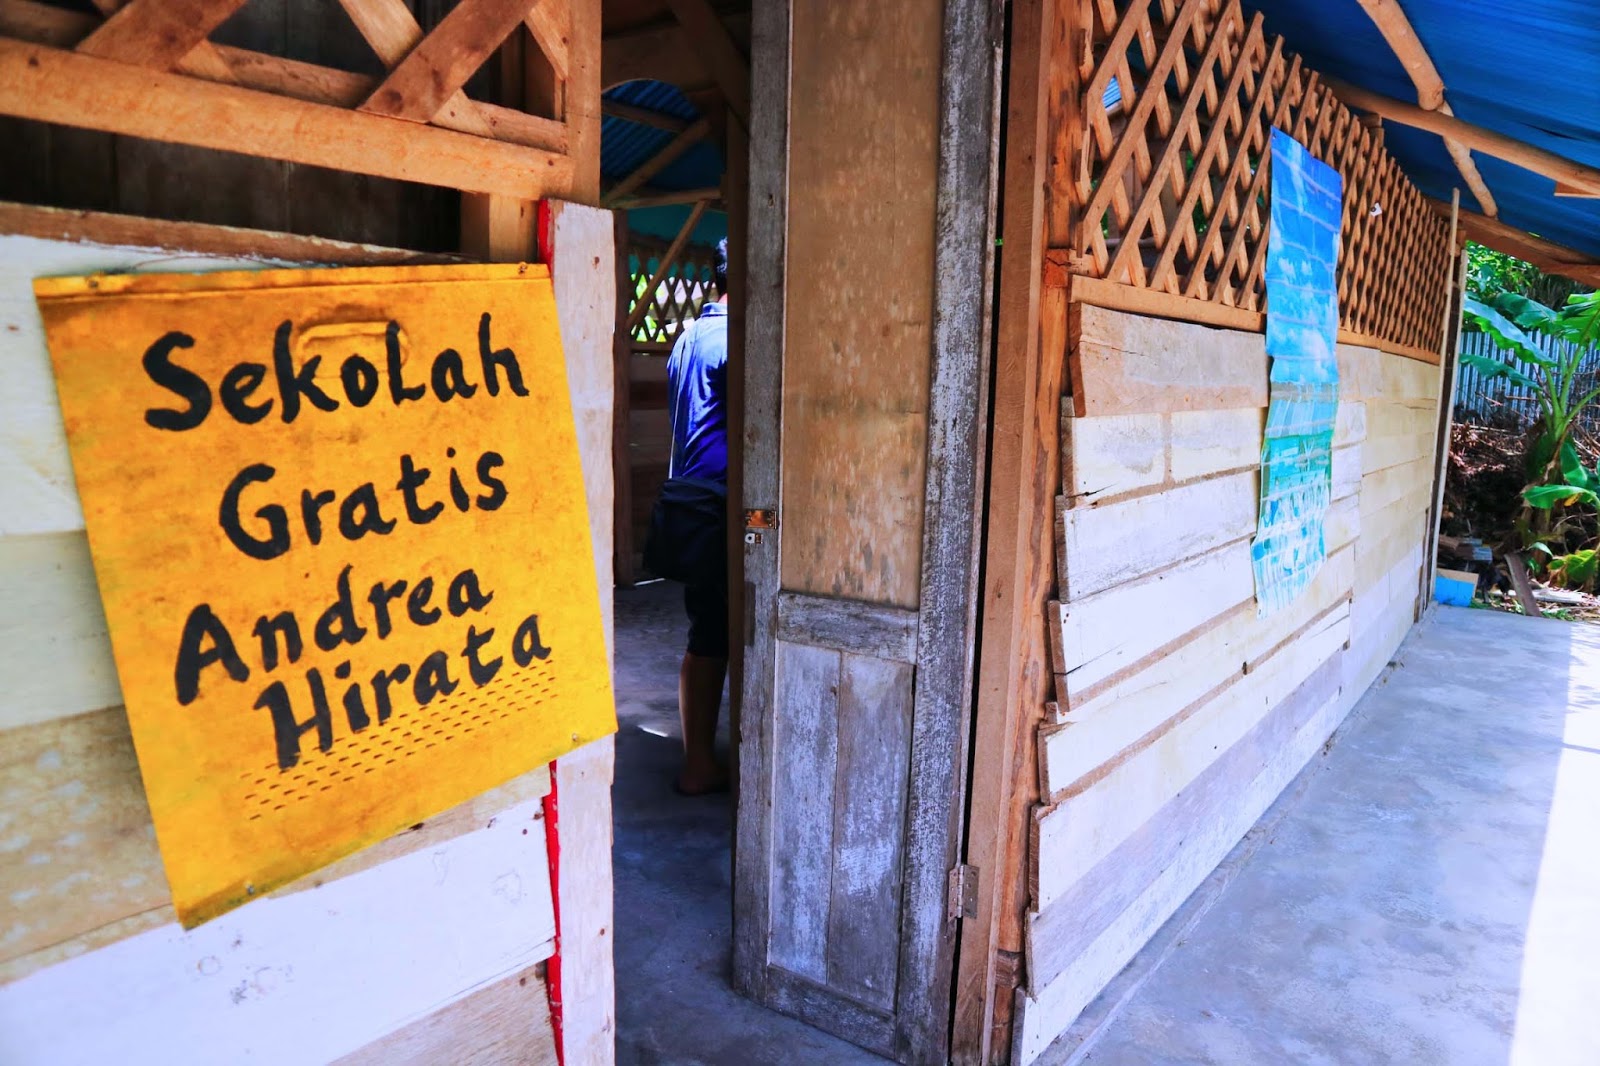 Sekolah
Gratis
Andrea
Hirata